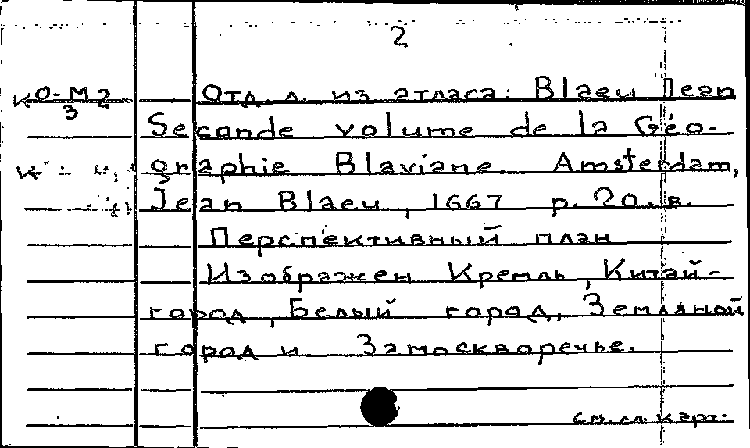 2
КО-М 2
3
Отд. л. из атласа: Blaeu Jean
Seconde volume de la Géo-
graphie Blaviane. Amsterdam,
Jean Blaeu, 1667 р. 20. в.
Перспективный план
Изображен Кремль, Китай-
город, Белый город, Земляной
город и Замоскворечье.
см. сл. карт.